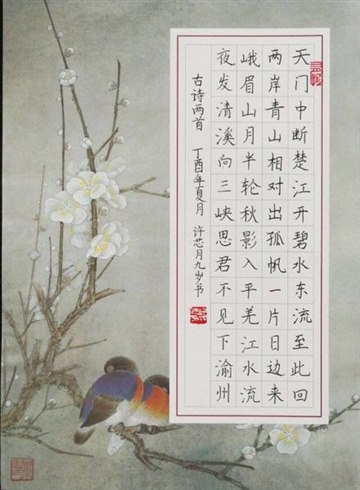 天门中断楚江开碧水东流至此回
两岸青山相对出孤帆一片日边来
峨眉山月半轮秋影入平羌江水流
夜发清溪向三峡思君不见下渝州
古诗两首 丁酉年夏月 许芯月九岁书